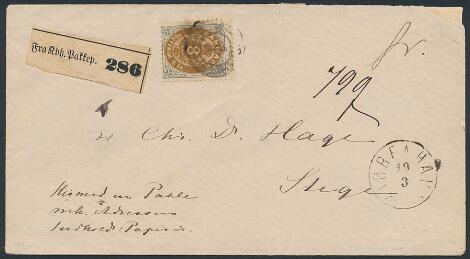 Fra Kbh. Pakkep. 286
8
fr.
799
Chr. D. Hage
Stege
KIØBENHAVN
19
3
Hermed en Pakke
mrk. Adressen
Indhold: Papirer.